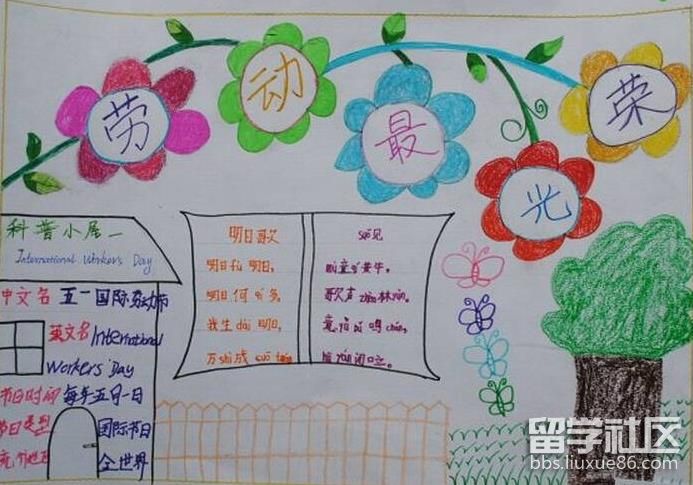 劳动最光荣
科普小
International Workers Day
中文名 五一国际劳动节
英文名 International
Workers' Day
节日时间 每年五月一日
节日类型 国际节日
全世界
明日歌
明日fù 明日,
明日何 qí多,
我生dài 明日,
万shì成 cuō
suǒ见
童qí黄牛,
歌声 zhèn林yuè,
意 鸣chán,
闭口立。
留学社区
bbs.liuxue86.com